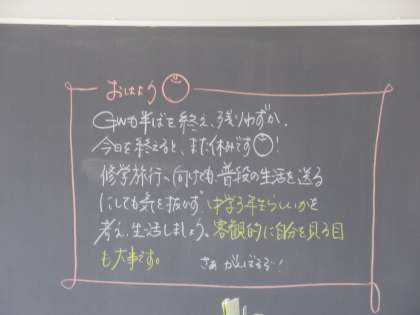 おはよう
GWも半ばを終え、残りわずか。
今日を終えると、また休みです！
修学旅行へ向けても普段の生活を送る
にしても気を抜かず、中学3年生らしいかを
考え、生活しましょう。客観的に自分を見る目
も大事です。 さぁ がんばるぞ！